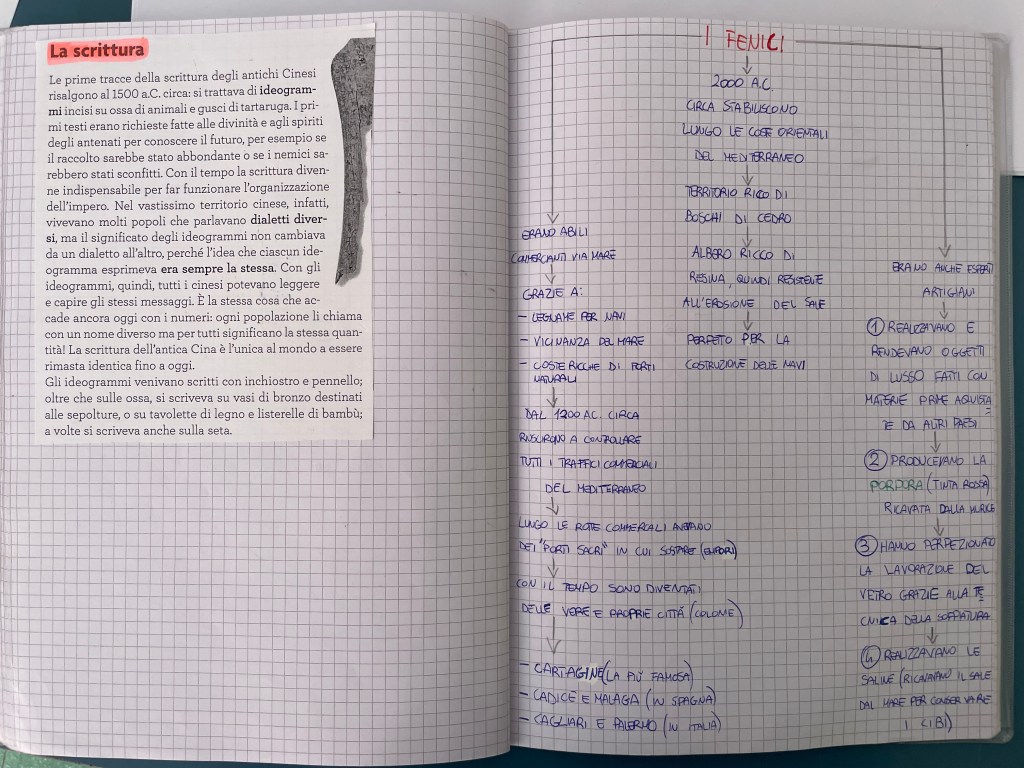 La scrittura
Le prime tracce della scrittura degli antichi Cinesi
risalgono al 1500 a.C. circa: si trattava di ideogram-
mi incisi su ossa di animali e gusci di tartaruga. I pri-
mi testi erano richieste fatte alle divinità e agli spiriti
degli antenati per conoscere il futuro, per esempio se
il raccolto sarebbe stato abbondante o se i nemici sa-
rebbero stati sconfitti. Con il tempo la scrittura diven-
ne indispensabile per far funzionare l'organizzazione
dell'impero. Nel vastissimo territorio cinese, infatti,
vivevano molti popoli che parlavano dialetti diver-
si, ma il significato degli ideogrammi non cambiava
da un dialetto all'altro, perché l'idea che ciascun ide-
ogramma esprimeva era sempre la stessa. Con gli
ideogrammi, quindi, tutti i cinesi potevano leggere
e capire gli stessi messaggi. È la stessa cosa che ac-
cade ancora oggi con i numeri: ogni popolazione li chiama
con un nome diverso ma per tutti significano la stessa quan-
tità! La scrittura dell'antica Cina è l'unica al mondo a essere
rimasta identica fino a oggi.
Gli ideogrammi venivano scritti con inchiostro e pennello;
oltre che sulle ossa, si scriveva su vasi di bronzo destinati
alle sepolture, o su tavolette di legno e listerelle di bambù;
a volte si scriveva anche sulla seta.
I FENICI
2000 A.C.
CIRCA STABILISCONO
LUNGO LE COSTE ORIENTALI
DEL MEDITERRANEO
TERRITORIO RICCO DI
BOSCHI DI CEDRO
ALBERO RICCO DI
RESINA, QUINDI RESISTENTE
ALL'EROSIONE DEL SALE
PERFETTO PER LA
COSTRUZIONE DELLE NAVI
ERANO ABILI
COMERCIANTI VIA MARE
GRAZIE A:
- LEGNAME PER NAVI
- VICINANZA DEL MARE
- COSTE RICCHE DI PORTI
NATURALI
DAL 1200 A.C. CIRCA
RIUSCIRONO A CONTROLLARE
TUTTI I TRAFFICI COMMERCIALI
DEL MEDITERRANEO
LUNGO LE ROTTE COMMERCALI AVEVANO
DEI "PORTI SACRI" IN CUI SOSTARE (EMPORI)
CON IL TEMPO SONO DIVENTATI
DELLE VERE E PROPRIE CITTÁ (COLONIE)
- CARTAGINE (LA PIÙ FAMOSA)
- CADICE E MALAGA (IN SPAGNA)
- CAGLIARI E PALERMO (IN ITALIA)
ERANO ANCHE ESPERTI
ARTIGIANI
1 REALIZZAVANO E
RENDEVANO OGGETTI
DI LUSSO FATTI CON
MATERIE PRIME AQUISTA
TE DA ALTRI PAESI
2 PRODUCEVANO LA
PORPORA (TINTA ROSSA)
RICAVATA DALLA MURICE
3 HANNO PERFEZIONATO
LA LAVORAZIONE DEL
VETRO GRAZIE ALLA TE
CNICA DELLA SOFFIATURA
4 REALIZZAVANO LE
SALINE (RICAVAVANO IL SALE
DAL MARE PER CONSERVARE
I CIBI)